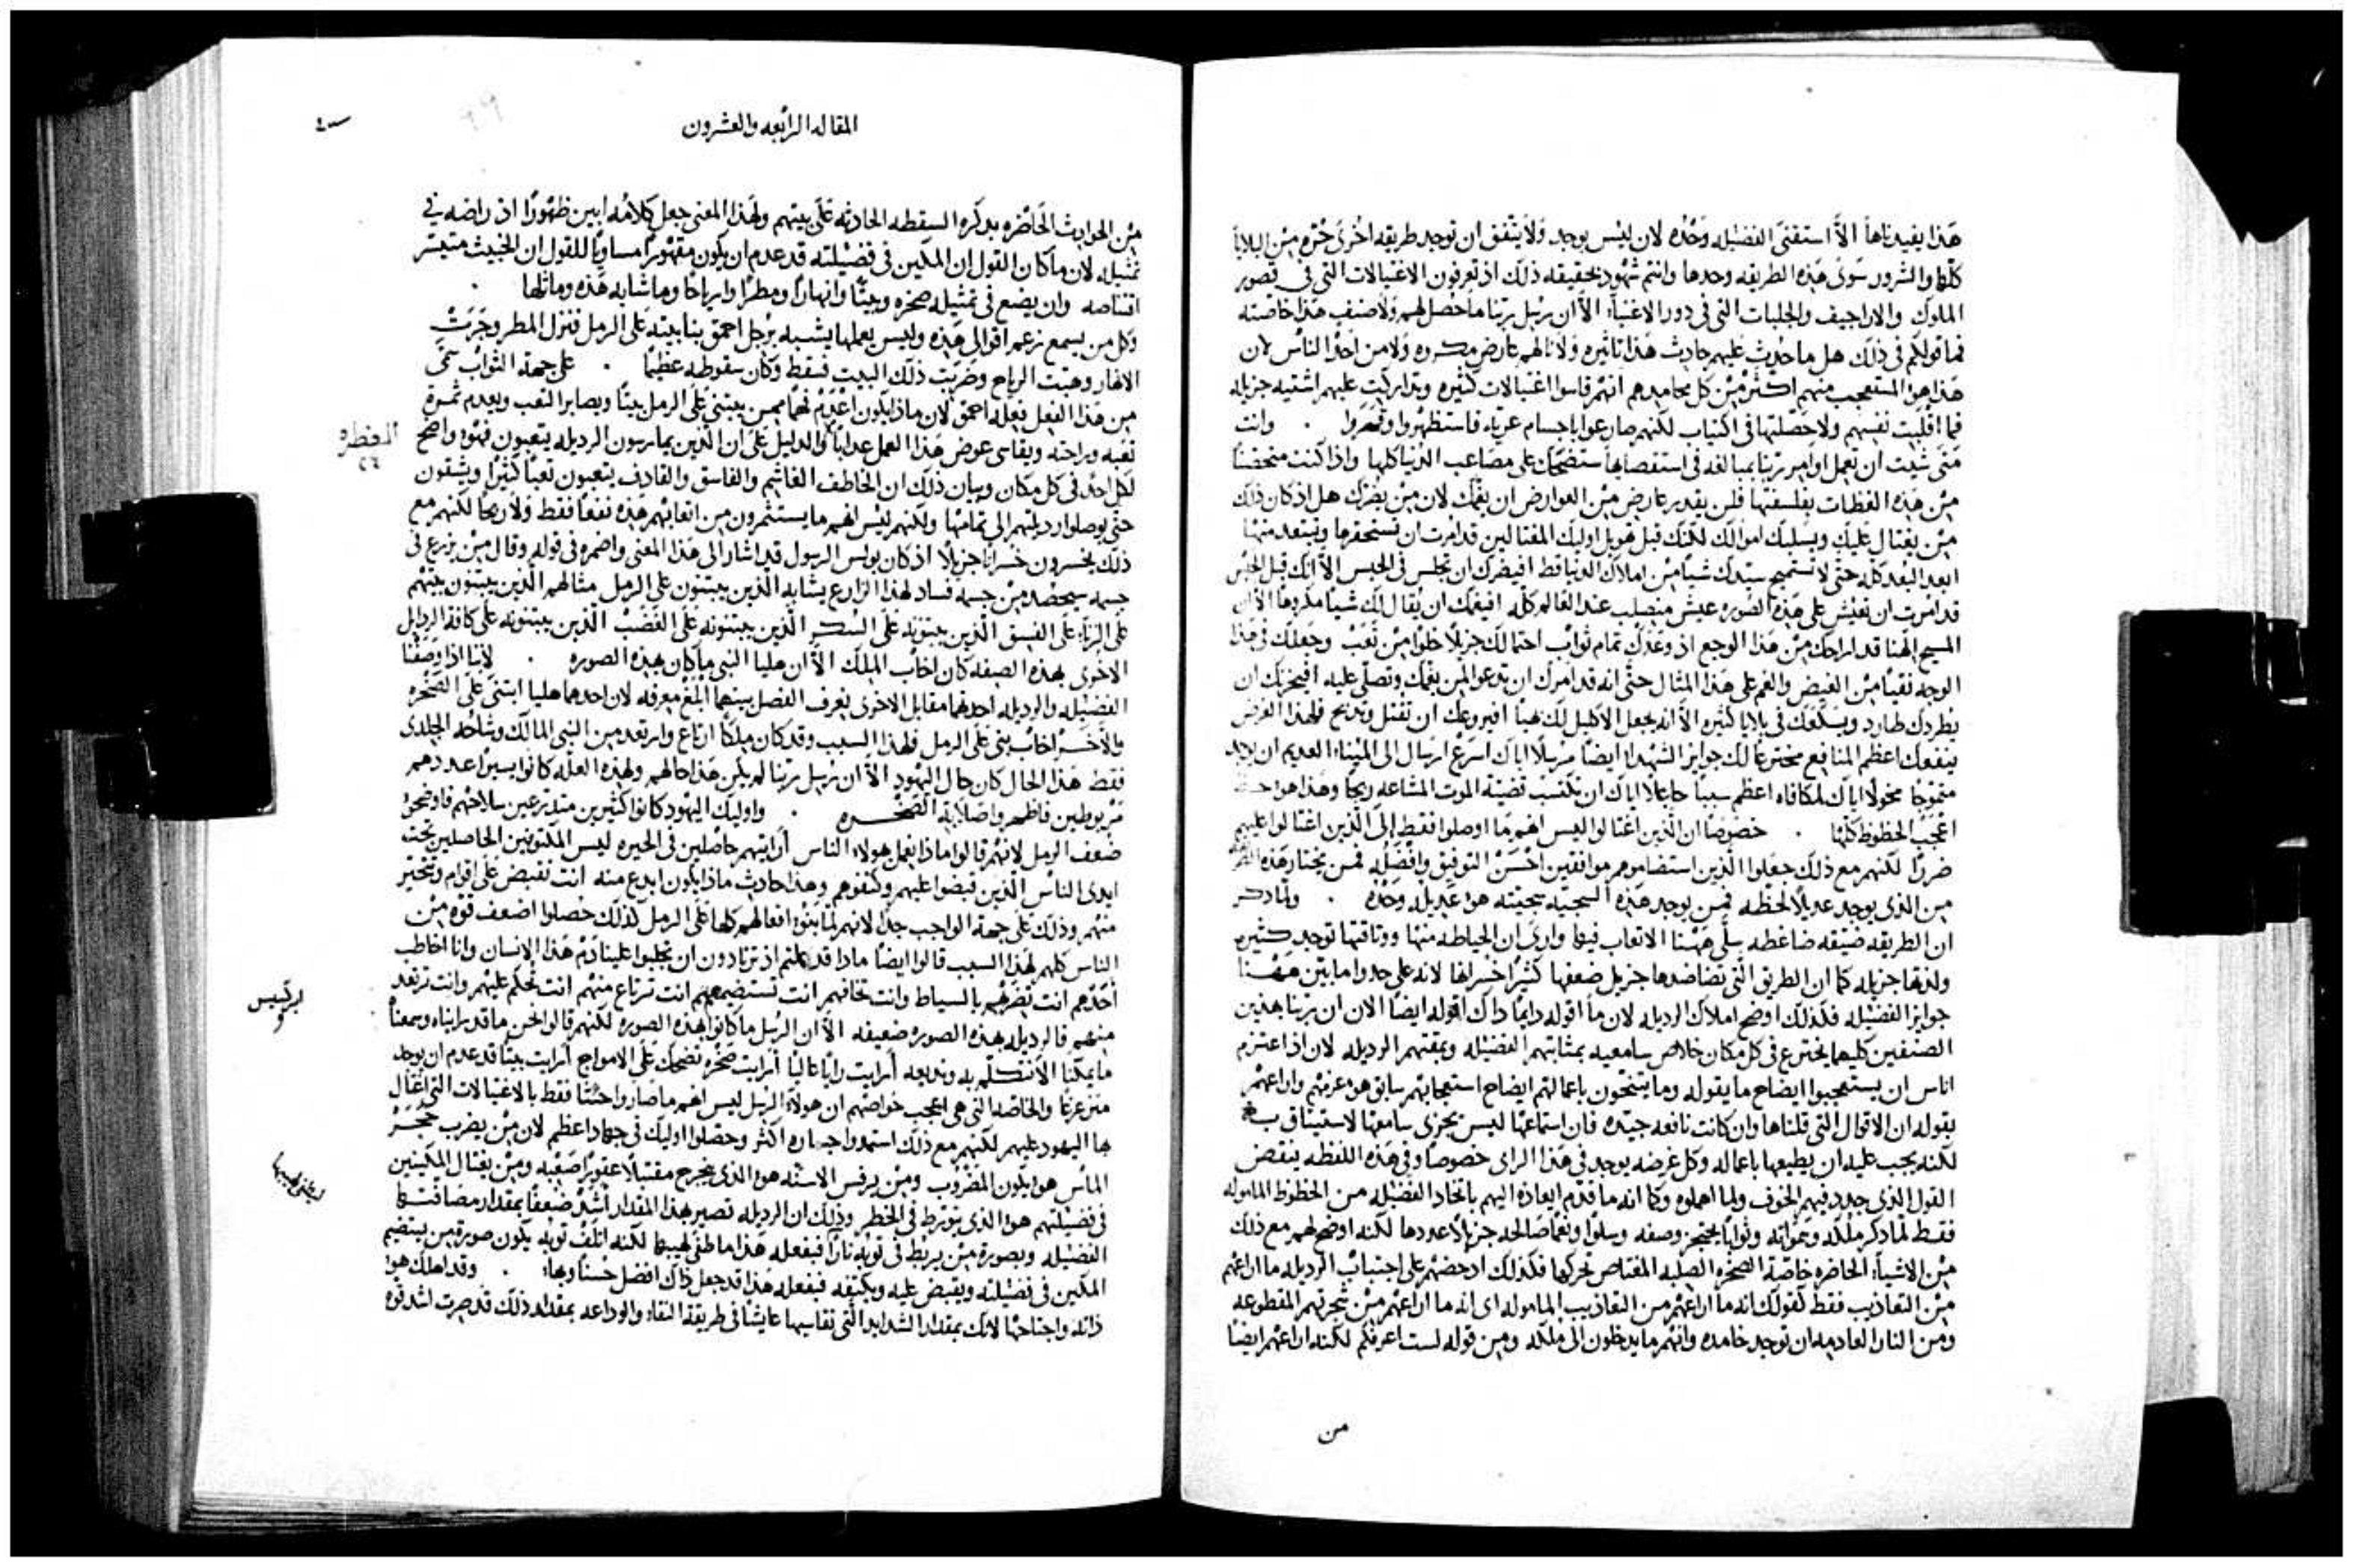 هذا يفيدناها الا استقنى الفضيله وحده لان ليس يوجد ولا يتفق ان توجد طريقه اخرى حُره من البلايا
كلها والشرور سوى هذه الطريقه وحدها وانتم شهود بحقيقه ذلك اذ تعرفون الاغتيالات التي في قصور
الملوك والاراجيف والجلبات التي في دور الاغنياء الا ان رسل ربنا ما حصل لهم ولا صنف هذا خاصته
فما قولكم في ذلك هل ما حدث عليهم حادث هذا تاثيره ولا نالهم عارض مكروه ولا من احد الناس لان
هذا هو المستعجب منهم اكثر من كل محامدهم انهم قاسوا اغتيالات كثيره وتداركت عليهم اشتيه جزيله
فما اقلبت نفسهم ولا حصلتها في اكتياب لكنهم صارعوا باجسام عريه فاستظهروا وقهروا . وانت
متى شيت ان تعمل اوامر ربنا بمبالغه في استقصايها ستضحك على مصاعب الدنيا كلها واذا كنت متحصناً
من هذه العظات بفلسفتها فلن يقدر عارض من العوارض ان يغمك لان من يضرك هل اذ كان ذلك
من يغتال عليك ويسلبك اموالك لكنك قبل هويل اوليك المغتالين قد امرت ان تستحقرها وتبتعد منها
ابعد البعد كله حتى لا تستميح سيدك شياً من املاك الدنيا قط افيضرك ان تجلس في الحبس الا انك قبل الحبس
قد امرت ان تعيش على هذه الصوره عيش متصلب عند العالم كله افيغمك ان يقال لك شياً مكروهاً الا ان
المسيح الهنا قد اراحك من هذا الوجع اذ وعدك تمام ثواب احتمالك جزيلا خلوا من تعب وجعلك في هذا
الوجه نقياً من الغيض والغم على هذا المثال حتى انه قد امرك ان تدعو لمن يغمك وتصلي عليه افيحزنك ان
يطردك طارد ويبلغك في بلايا كثيره الا انه يجعل الاكليل لك هيناً افيروعك ان تقتل وتدبح فلهذا الغرض
ينفعك اعظم المنافع مخترعاً لك جوايز الشهدا ايضاً مرسلا اياك اسرع ارسال الى المينا العديم ان يوجد
متموجاً مخولا اياك لمكافاه اعظم سبباً جاعلا اياك ان تكتسب قضية الموت المشاعه ربحا وهذا هو
اعجب الحظوظ كلها . خصوصاً ان الذين اغتالوا ليس انهم ما اوصلوا فقط الى الذين اغتالوا عليهم
ضررا لكنهم مع ذلك جعلوا الذين استضاموهم موافقين احسن التوفيق وافضله فمن يختار هذه
من الذي يوجد عديلا لحظه فمن يوجد هذه السجيه سجيته هو عديله وحده . ولما ذكر
ان الطريقه ضيقه ضاغطه سلى ههنا الاتعاب فيها وارى ان الحياطه منها ووثاقتها توجد كثيره
ولذتها جزيله كما ان الطريق التي تضاضدها جزيل ضعفها كثيراً خسرانها لانه على حدو ما بين ههنا
جوايز الفضيله فكذلك اوضح املاك الرديله لان ما اقوله دايماً ذاك اقوله ايضاً الان ان ربنا بهذين
الصنفين كليهما يخترع في كل مكان خلاص سامعيه بمثابتهم الفضيله وبمقتهم الرديله لان اذ اعتزم
اناس ان يستعجبوا ايضاح ما يقوله وما ينتحون باعمالهم ايضاح استعجابهم سابق هو عزمهم واراعهم
بقوله ان الاقوال التي قلناها وان كانت نافعه جيده فان استماعها ليس يجزي سامعها لاستيثاق به
لكنه يجب عليه ان يطيعها باعماله وكل غرضه يوجد في هذا الراى خصوصاً وفي هذه اللفظه ينقض
القول الذي جدد فيهم الخوف ولما اهلوه وكما انه ما قدم العاده اليهم باتخاد الفضيله من الحظوظ الماموله
فقط لما ذكر ملكه وسمواته وثواباً يحتجز وصفه وسلوا ونعماً صالحه جزيلا عددها لكنه اوضح لهم مع ذلك
من الاشياء الحاضره خاصة الصخره الصلبه المعتاص تحركها فكذلك ادحضهم على اجتناب الرديله ما اراعهم
من التعاذيب فقط كقولك انه ما اراعهم من التعاذيب الماموله اى انه ما اراعهم من شجرتهم المقطوعه
ومن النار العادمه ان توجد خامده وانهم ما يدخلون الى ملكه ومن قوله لست اعرفكم لكنه اراعهم ايضا
من
المقاله الرابعه والعشرون
من الحوادث الحاضره بذكره السقطه الحادثه على بيتهم ولهذا المعنى جعل كلامه ابين ظهوراً اذ راضه في
تمثيله لان ما كان القول ان المكين في فضيلته قد عدم ان يكون مقهوراً مساوياً للقول ان الخبيث متيسر
اقتناصه وان يضع في تمثيله صخره وبيتاً وانهاراً ومطراً وارياحاً وما شابه هذه وماثلها .
وكل من يسمع زعم اقوالى هذه وليس يعملها يشبه برجل احمق بنا بيته على الرمل فنزل المطر وجرت
الانهار وهبت الرياح وضربت ذلك البيت فسقط وكان سقوطه عظيماً . على جهة الثواب سمى
من هذا الفعل فعله احمق لان ماذا يكون اعدم فهماً ممن يبتني على الرمل بيتاً ويصابر التعب ويعدم ثمرة
تعبه وراحته ويقاسى عوض هذا العمل عذاباً والدليل على ان الذين يمارسون الرديله يتعبون فهو واضح
لكل احد في كل مكان وبيان ذلك ان الخاطف الغاشم والفاسق والقادف يتعبون تعباً كثيراً ويشقون
حتى يوصلوا رديلتهم الى تمامها ولكنهم ليس انهم ما يستثمرون من اتعابهم هذه نفعاً فقط ولا ربحاً لكنهم مع
ذلك يخسرون خسراناً جزيلا اذ كان بولس الرسول قد اشار الى هذا المعنى واضمره في قوله وقال من يزرع في
جسمه سيحصد من جسمه فساد لهذا الزارع يشابه الذين يبتنون على الرمل مثالهم الذين يبتنون بيتهم
على الزنا على الفسق الذين يبتنونه على السكر الذين يبتنونه على الغضب الذين يبتنونه على كافة الردايل
الاخرى بهذه الصفه كان اخاب الملك الا ان هليا النبي ما كان بهذه الصوره . لاننا اذا وصفنا
الفضيله والرديله احدهما مقابل الاخرى نعرف الفصل بينهما ابلغ معرفه لان احدهما هليا ابتنى على الصخره
والاخر اخاب بنى على الرمل فلهذا السبب وقد كان ملكاً ارتاع وارتعد من النبي المالك وشاحه الجلدى
فقط هذا الحال كان حال اليهود الا ان رسل ربنا لم يكن هذا حالهم ولهذه العله كانوا يسيراً عددهم
مربوطين فاظهروا صلابة الصخره . واوليك اليهود كانوا كثيرين متدرعين سلاحهم فاوضحوا
ضعف الرمل لانهم قالوا ماذا نعمل هولاء الناس أرايتهم حاصلين في الحيره ليس المكتوفين الحاصلين تحت
ايدى الناس الذين قبضوا عليهم وكتفوهم وهذا حادث ماذا يكون ابدع منه انت تقبض على اقوام وتتحير
منهم وذلك على جهة الواجب جداً لانهم لما بنوا افعالهم كلها على الرمل كذلك حصلوا اضعف قوه من
الناس كلهم لهذا السبب قالوا ايضاً ماذا قد عملتم اذ ترتادون ان تجلبوا علينا دم هذا الانسان وانا اخاطب
احدهم انت تضربهم بالسياط وانت تخافهم انت تستضيمهم انت ترتاع منهم انت تحكم عليهم وانت ترتعد
منهم فالرديله بهذه الصوره ضعيفه الا ان الرسل ما كانوا بهذه الصوره لكنهم قالوا نحن ما قد راينا وسمعنا
ما يمكنا الا نتكلم به ونذيعه أرايت رايا عاليا أرايت صخره تضحك على الامواج أرايت بيتاً قد عدم ان يوجد
متزعزعا والخاصه التي هي اعجب خواصهم ان هولاء الرسل ليس انهم ما صاروا جبنا فقط بالاغتيالات التي اغتال
بها اليهود عليهم لكنهم مع ذلك استمدوا جساره اكثر وحصلوا اوليك في جهاد اعظم لان من يضرب حجر
الماس هو يكون المضروب ومن يرفس الاسنه هو الذي يخرج مقتبلا عقوراً صعبه ومن يغتال المكينين
في فضيلتهم هو الذي يتورط في الخطر وذلك ان الرديله تصير بهذا المقدار اشد ضعفاً بمقدار مصافتها
الفضيله وبصورة من يربط في ثوبه ناراً فبفعله هذا ما طفى لهيبها لكنه اتلف ثوبه يكون صورة من يستضيم
المكين في فضيلته ويقبض عليه ويكتفه فبفعله هذا قد جعل ذاك افضل حسناً وبهاء . وقد اهلك هو
ذاته واجتاحها لانك بمقدار الشدايد التي تقاسيها عايشاً في طريقة النقاء والوداعه بمقدار ذلك قد صرت اشد قوه
العظه
٢٤